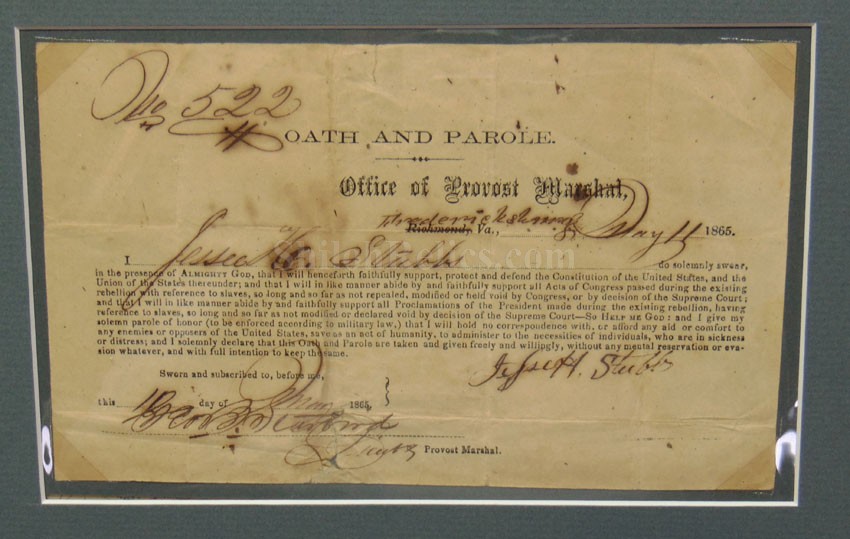 No 522
OATH AND PAROLE.
Office of Provost Marshal,
Fredericksburg
Richmond, Va., May 11 1865.
I Jesse H. Stubbs do solemnly swear,
in the presence of ALMIGHTY GOD, that I will henceforth faithfully support, protect and defend the Constitution of the United States, and the
Union of the States thereunder; and that I will in like manner abide by and faithfully support all Acts of Congress passed during the existing
rebellion with reference to slaves, so long and so far as not repealed, modified or held void by Congress, or by decision of the Supreme Court;
and that I will in like manner abide by and faithfully support all Proclamations of the President made during the existing rebellion, having
reference to slaves, so long and so far as not modified or declared void by decision of the Supreme Court—SO HELP ME GOD: and I give my
solemn parole of honor (to be enforced according to military law,) that I will hold no correspondence with, or afford any aid or comfort to
any enemies or opposers of the United States, save as an act of humanity, to administer to the necessities of individuals, who are in sickness
or distress; and I solemnly declare that this Oath and Parole are taken and given freely and willingly, without any mental reservation or eva-
sion whatever, and with full intention to keep the same.
Jesse H. Stubbs
Sworn and subscribed to, before me,
this day of May 1865,
Provost Marshal.